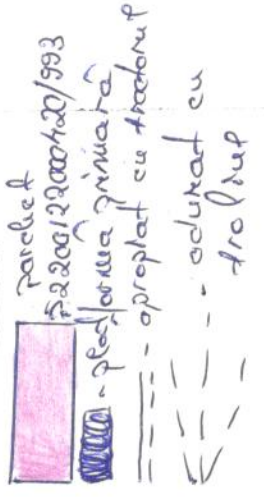 parchet
5220012200420/993
- platforma primară
- apropiat cu tractorul
- adunat cu
troliul